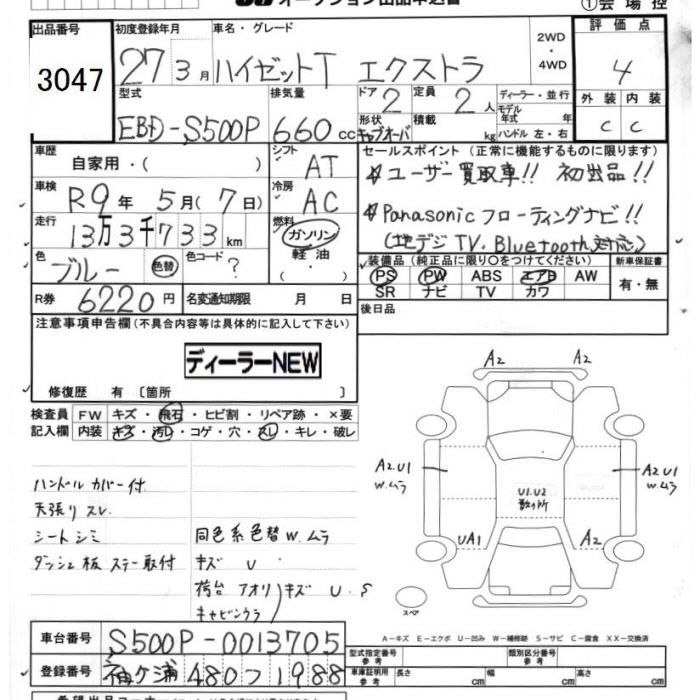 オークション出品申込書 ①会場控
出品番号 初度登録年月 車名・グレード 2WD・4WD 評価点
3047 27 3月 ハイゼットT エクストラ 4
型式 排気量 ドア 2 定員 2人 ディーラー・並行 外装 内装
EBD-S500P 660cc 形状 キャブオーバ 積載 kg モデル年式 年式 ハンドル 左・右 C C
車歴 自家用・( ) シフト AT セールスポイント(正常に機能するものに限ります)
車検 R9年 5月(7日) 冷房 AC ☆ユーザー買取車!! 初出品!!
走行 13万3千733km 燃料 ガソリン・軽油・ ☆Panasonicフローティングナビ!!
(地デジTV・Bluetooth対応)
色 ブルー 色替 色コード ? 装備品(純正品に限り○をつけてください) 新車保証書
PS PW ABS エアB AW 有・無
SR ナビ TV カワ
R券 6220円 名変通知期限 月 日 後日品
注意事項申告欄(不具合内容等は具体的に記入して下さい)
ディーラーNEW
修復歴 有 〔箇所 〕
検査員 FW キズ・飛石・ヒビ割・リペア跡・×要
記入欄 内装 キズ・汚れ・コゲ・穴・スレ・キレ・破レ
ハンドルカバー付
天張りスレ
シートシミ
ダッシュ板ステー取付
同色系色替W.ムラ
キズ U
荷台アオリ キズ U.S
キャビンウラ
A2 A2
A2U1 W.ムラ
U1.U2
A2U1 W.ムラ
UA1 A2
スペア
A-キズ E-エクボ U-凹み W-補修跡 S-サビ C-腐食 XX-交換済
車台番号 S500P-0013705
登録番号 袖ヶ浦 480つ1988
型式指定番号 参考 類別区分番号 参考
車庫証明用 参考 長さ cm 幅 cm 高さ cm